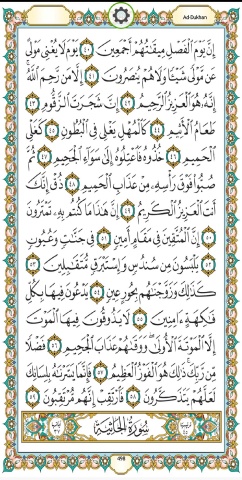 Ad-Dukhan
إِنَّ يَوْمَ ٱلْفَصْلِ مِيقَٰتُهُمْ أَجْمَعِينَ ٤٠ يَوْمَ لَا يُغْنِى مَوْلًى
عَن مَّوْلًى شَيْـًٔا وَلَا هُمْ يُنصَرُونَ ٤١ إِلَّا مَن رَّحِمَ ٱللَّهُ
إِنَّهُۥ هُوَ ٱلْعَزِيزُ ٱلرَّحِيمُ ٤٢ إِنَّ شَجَرَتَ ٱلزَّقُّومِ ٤٣
طَعَامُ ٱلْأَثِيمِ ٤٤ كَٱلْمُهْلِ يَغْلِى فِى ٱلْبُطُونِ ٤٥ كَغَلْىِ
ٱلْحَمِيمِ ٤٦ خُذُوهُ فَٱعْتِلُوهُ إِلَىٰ سَوَآءِ ٱلْجَحِيمِ ٤٧ ثُمَّ
صُبُّوا۟ فَوْقَ رَأْسِهِۦ مِنْ عَذَابِ ٱلْحَمِيمِ ٤٨ ذُقْ إِنَّكَ
أَنتَ ٱلْعَزِيزُ ٱلْكَرِيمُ ٤٩ إِنَّ هَٰذَا مَا كُنتُم بِهِۦ تَمْتَرُونَ
٥٠ إِنَّ ٱلْمُتَّقِينَ فِى مَقَامٍ أَمِينٍ ٥١ فِى جَنَّٰتٍ وَعُيُونٍ
٥٢ يَلْبَسُونَ مِن سُندُسٍ وَإِسْتَبْرَقٍ مُّتَقَٰبِلِينَ ٥٣
كَذَٰلِكَ وَزَوَّجْنَٰهُم بِحُورٍ عِينٍ ٥٤ يَدْعُونَ فِيهَا بِكُلِّ
فَٰكِهَةٍ ءَامِنِينَ ٥٥ لَا يَذُوقُونَ فِيهَا ٱلْمَوْتَ
إِلَّا ٱلْمَوْتَةَ ٱلْأُولَىٰ وَوَقَىٰهُمْ عَذَابَ ٱلْجَحِيمِ ٥٦ فَضْلًا
مِّن رَّبِّكَ ذَٰلِكَ هُوَ ٱلْفَوْزُ ٱلْعَظِيمُ ٥٧ فَإِنَّمَا يَسَّرْنَٰهُ بِلِسَانِكَ
لَعَلَّهُمْ يَتَذَكَّرُونَ ٥٨ فَٱرْتَقِبْ إِنَّهُم مُّرْتَقِبُونَ ٥٩
سُورَةُ الجَاثِيَةِ
498